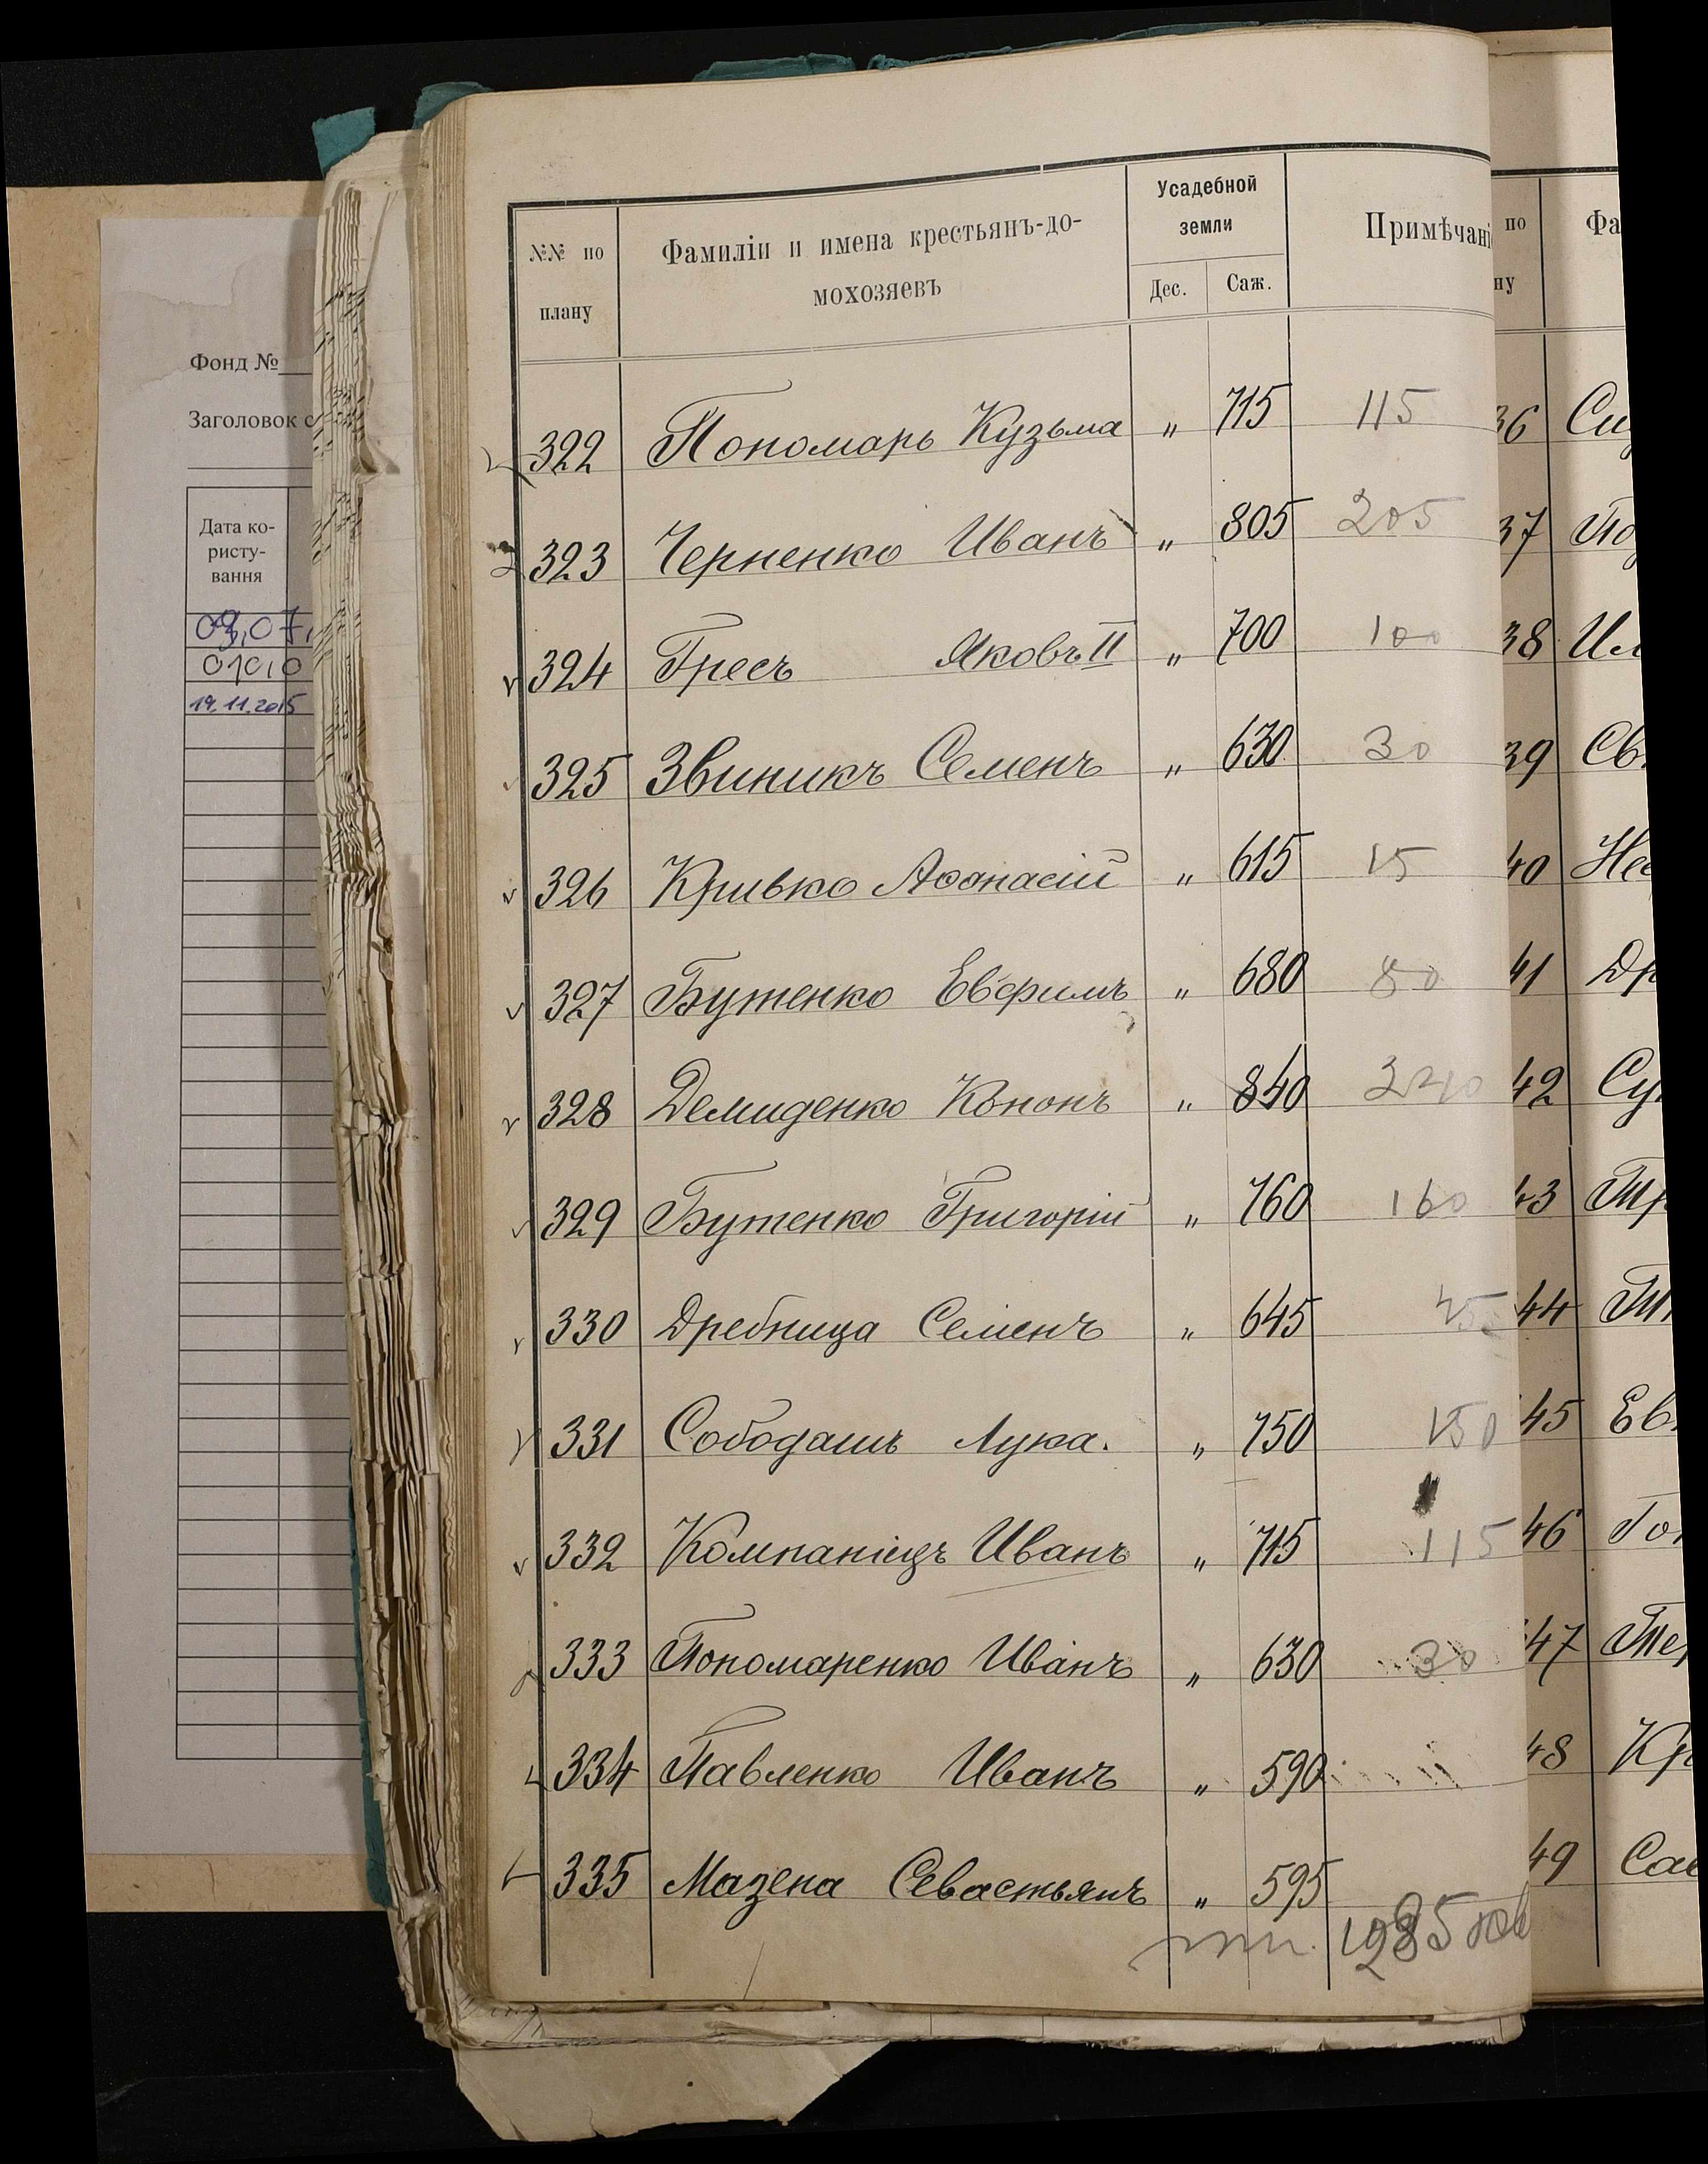 Фонд №
Заголовок с
Дата ко-
ристу-
вання
09.07.
01.0.0
19.11.2015
№№ по
плану
Фамиліи и имена крестьянъ-до-
мохозяевъ
Усадебной
земли
Дес. Саж.
Примѣчані
322 Пономарь Кузьма " 715 115
323 Черненко Иванъ " 805 205
324 Гресъ Яковъ II " 700 100
325 Звиникъ Семенъ " 630 30
326 Кривко Аѳанасій " 615 15
327 Бутенко Евфимъ " 680 80
328 Демиденко Кононъ " 840 240
329 Бутенко Григорій " 760 160
330 Дребница Семенъ " 645 45
331 Сободашъ Лука. " 750 150
332 Компаніецъ Иванъ " 715 115
333 Пономаренко Иванъ " 630 30
334 Павленко Иванъ " 590
335 Мазепа Севастьянъ " 595
по
ну
Фа
36 Си
37 По
38 Ил
39 Св
40 Не
41 Др
42 Су
43 Тр
44
45 Ев
46 Го
47 Те
48 Кр
49 Сав